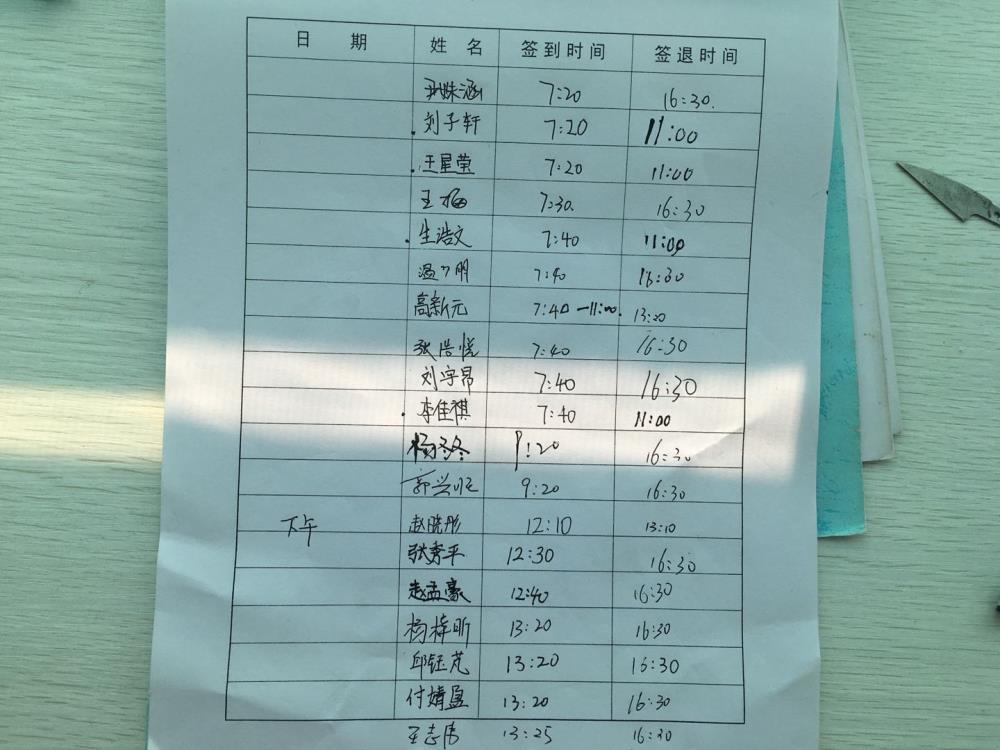 日 期 姓 名 签到时间 签退时间
姝涵 7:20 16:30.
刘子轩 7:20 11:00
王星莹 7:20 11:00
王 7:30. 16:30
生浩文 7:40 11:00
温 明 7:40 16:30
高新元 7:40 —11:00. 13:20
张浩悦 7:40 16:30
刘宇昂 7:40 16:30
李佳祺 7:40 11:00
杨冬冬 9:20 16:30
郭兴旺 9:20 16:30
下午 赵晓彤 12:10 13:10
张秀平 12:30 16:30
赵孟豪 12:40 16:30
杨梓昕 13:20 16:30
邱钰芃 13:20 16:30
付婧盈 13:20 16:30
王志伟 13:25 16:30